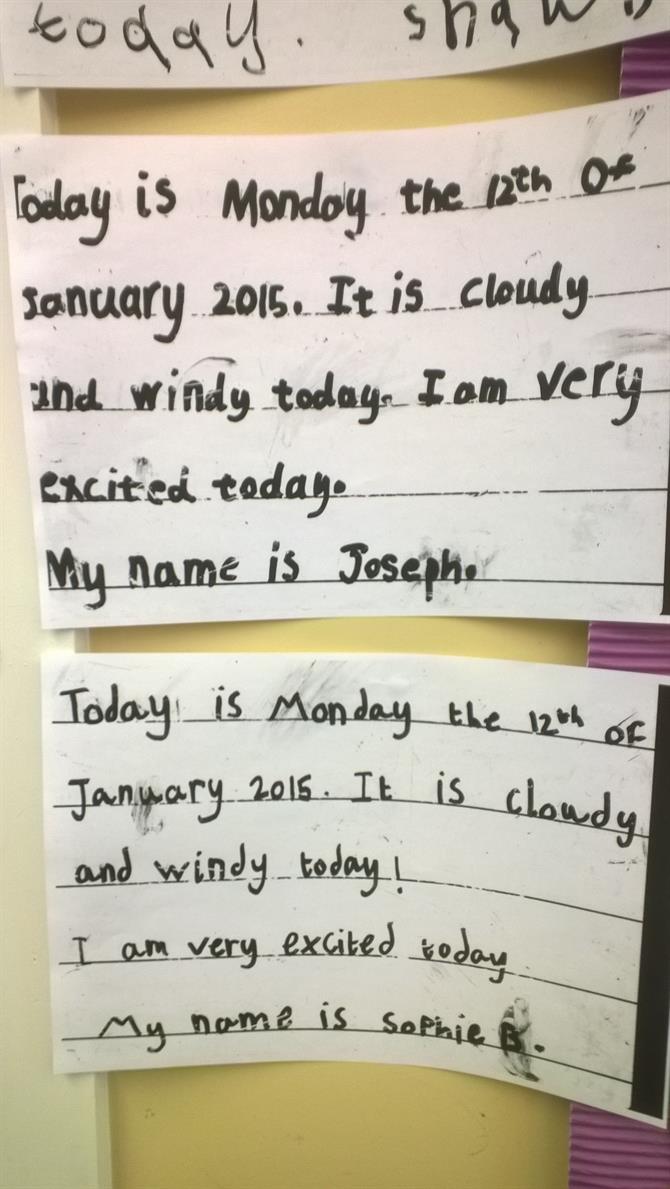 today. shawn
Today is Monday the 12th OF
January 2015. It is cloudy
and windy today. I am very
excited today.
My name is Joseph.
Today is Monday the 12th OF
January 2015. It is cloudy
and windy today!
I am very excited today
My name is Sophie B.